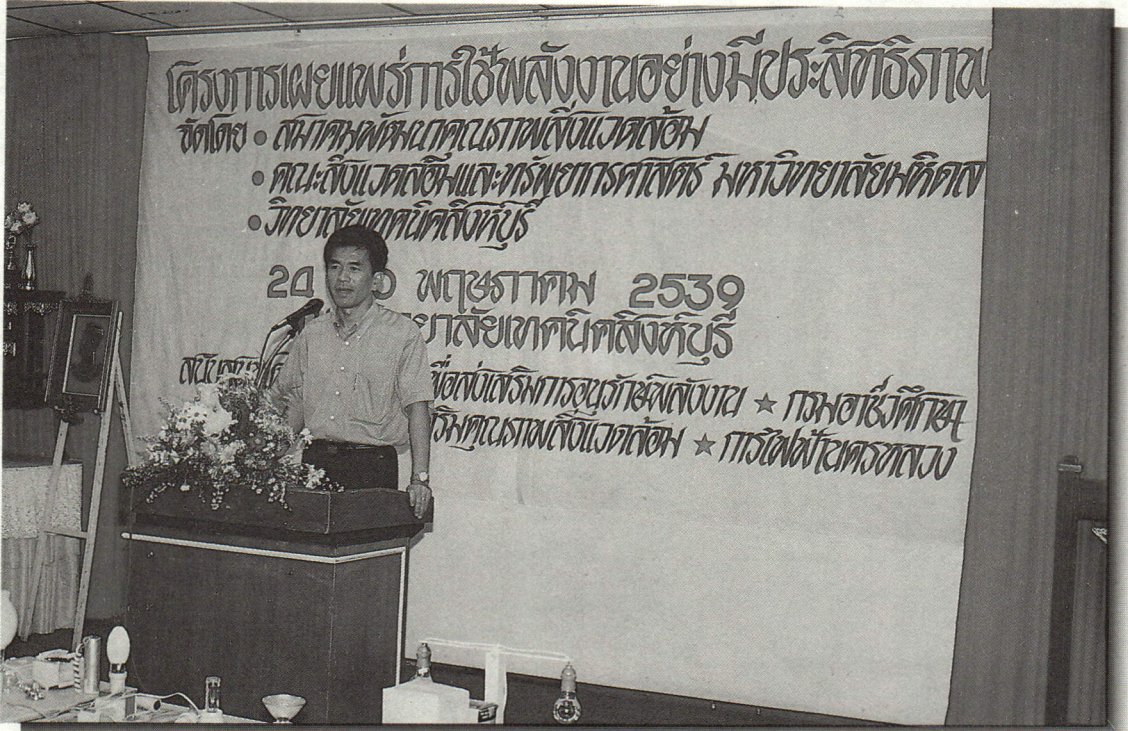 โครงการเผยแพร่การใช้พลังงานอย่างมีประสิทธิภาพ
จัดโดย • สมาคมพัฒนาคุณภาพสิ่งแวดล้อม
• คณะสิ่งแวดล้อมและทรัพยากรศาสตร์ มหาวิทยาลัยมหิดล
• วิทยาลัยเทคนิคสิงห์บุรี
พฤษภาคม 2539
ยาลัยเทคนิคสิงห์บุรี
เพื่อส่งเสริมการอนุรักษ์พลังงาน ★ กรมอาชีวศึกษา
ริมคุณภาพสิ่งแวดล้อม ★ การไฟฟ้านครหลวง